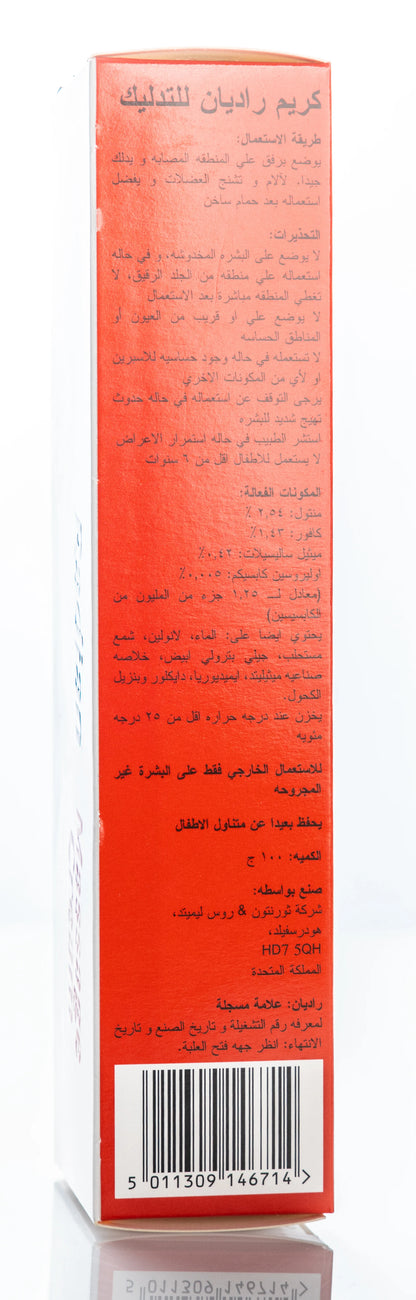 كريم راديان للتدليك
طريقة الاستعمال:
يوضع برفق علي المنطقه المصابه و يدلك
جيدا. لآلام و تشنج العضلات و يفضل
استعماله بعد حمام ساخن
التحذيرات:
لا يوضع على البشره المخدوشه، و في حاله
استعماله علي منطقه من الجلد الرقيق، لا
تغطي المنطقه مباشرة بعد الاستعمال
لا يوضع علي او قريب من العيون أو
المناطق الحساسه
لا تستعمله في حاله وجود حساسيه للاسبرين
او لأي من المكونات الاخري
يرجى التوقف عن استعماله في حاله حدوث
تهيج شديد للبشره
استشر الطبيب في حاله استمرار الاعراض
لا يستعمل للاطفال اقل من ٦ سنوات
المكونات الفعالة:
منتول: ٢,٥٤ ٪
كافور: ١,٤٣٪
ميثيل ساليسيلات: ٠,٤٢٪
اوليروسين كابسيكم: ٠,٠٠٥٪
(معادل لـــ ١,٢٥ جزء من المليون من
الكابسيسين)
يحتوي ايضا على: الماء، لانولين، شمع
مستحلب، جيلي بترولي ابيض، خلاصه
صناعيه ميثيليتد، ايميديوريا، دايكلور وبنزيل
الكحول.
يخزن عند درجه حراره اقل من ٢٥ درجه
مئويه
للاستعمال الخارجي فقط على البشرة غير
المجروحه
يحفظ بعيدا عن متناول الاطفال
الكميه: ١٠٠ ج
صنع بواسطه:
شركة ثورنتون & روس ليميتد،
هودرسفيلد،
HD7 5QH
المملكة المتحدة
راديان: علامة مسجلة
لمعرفه رقم التشغيلة و تاريخ الصنع و تاريخ
الانتهاء: انظر جهه فتح العلبة.
5 011309 146714 >